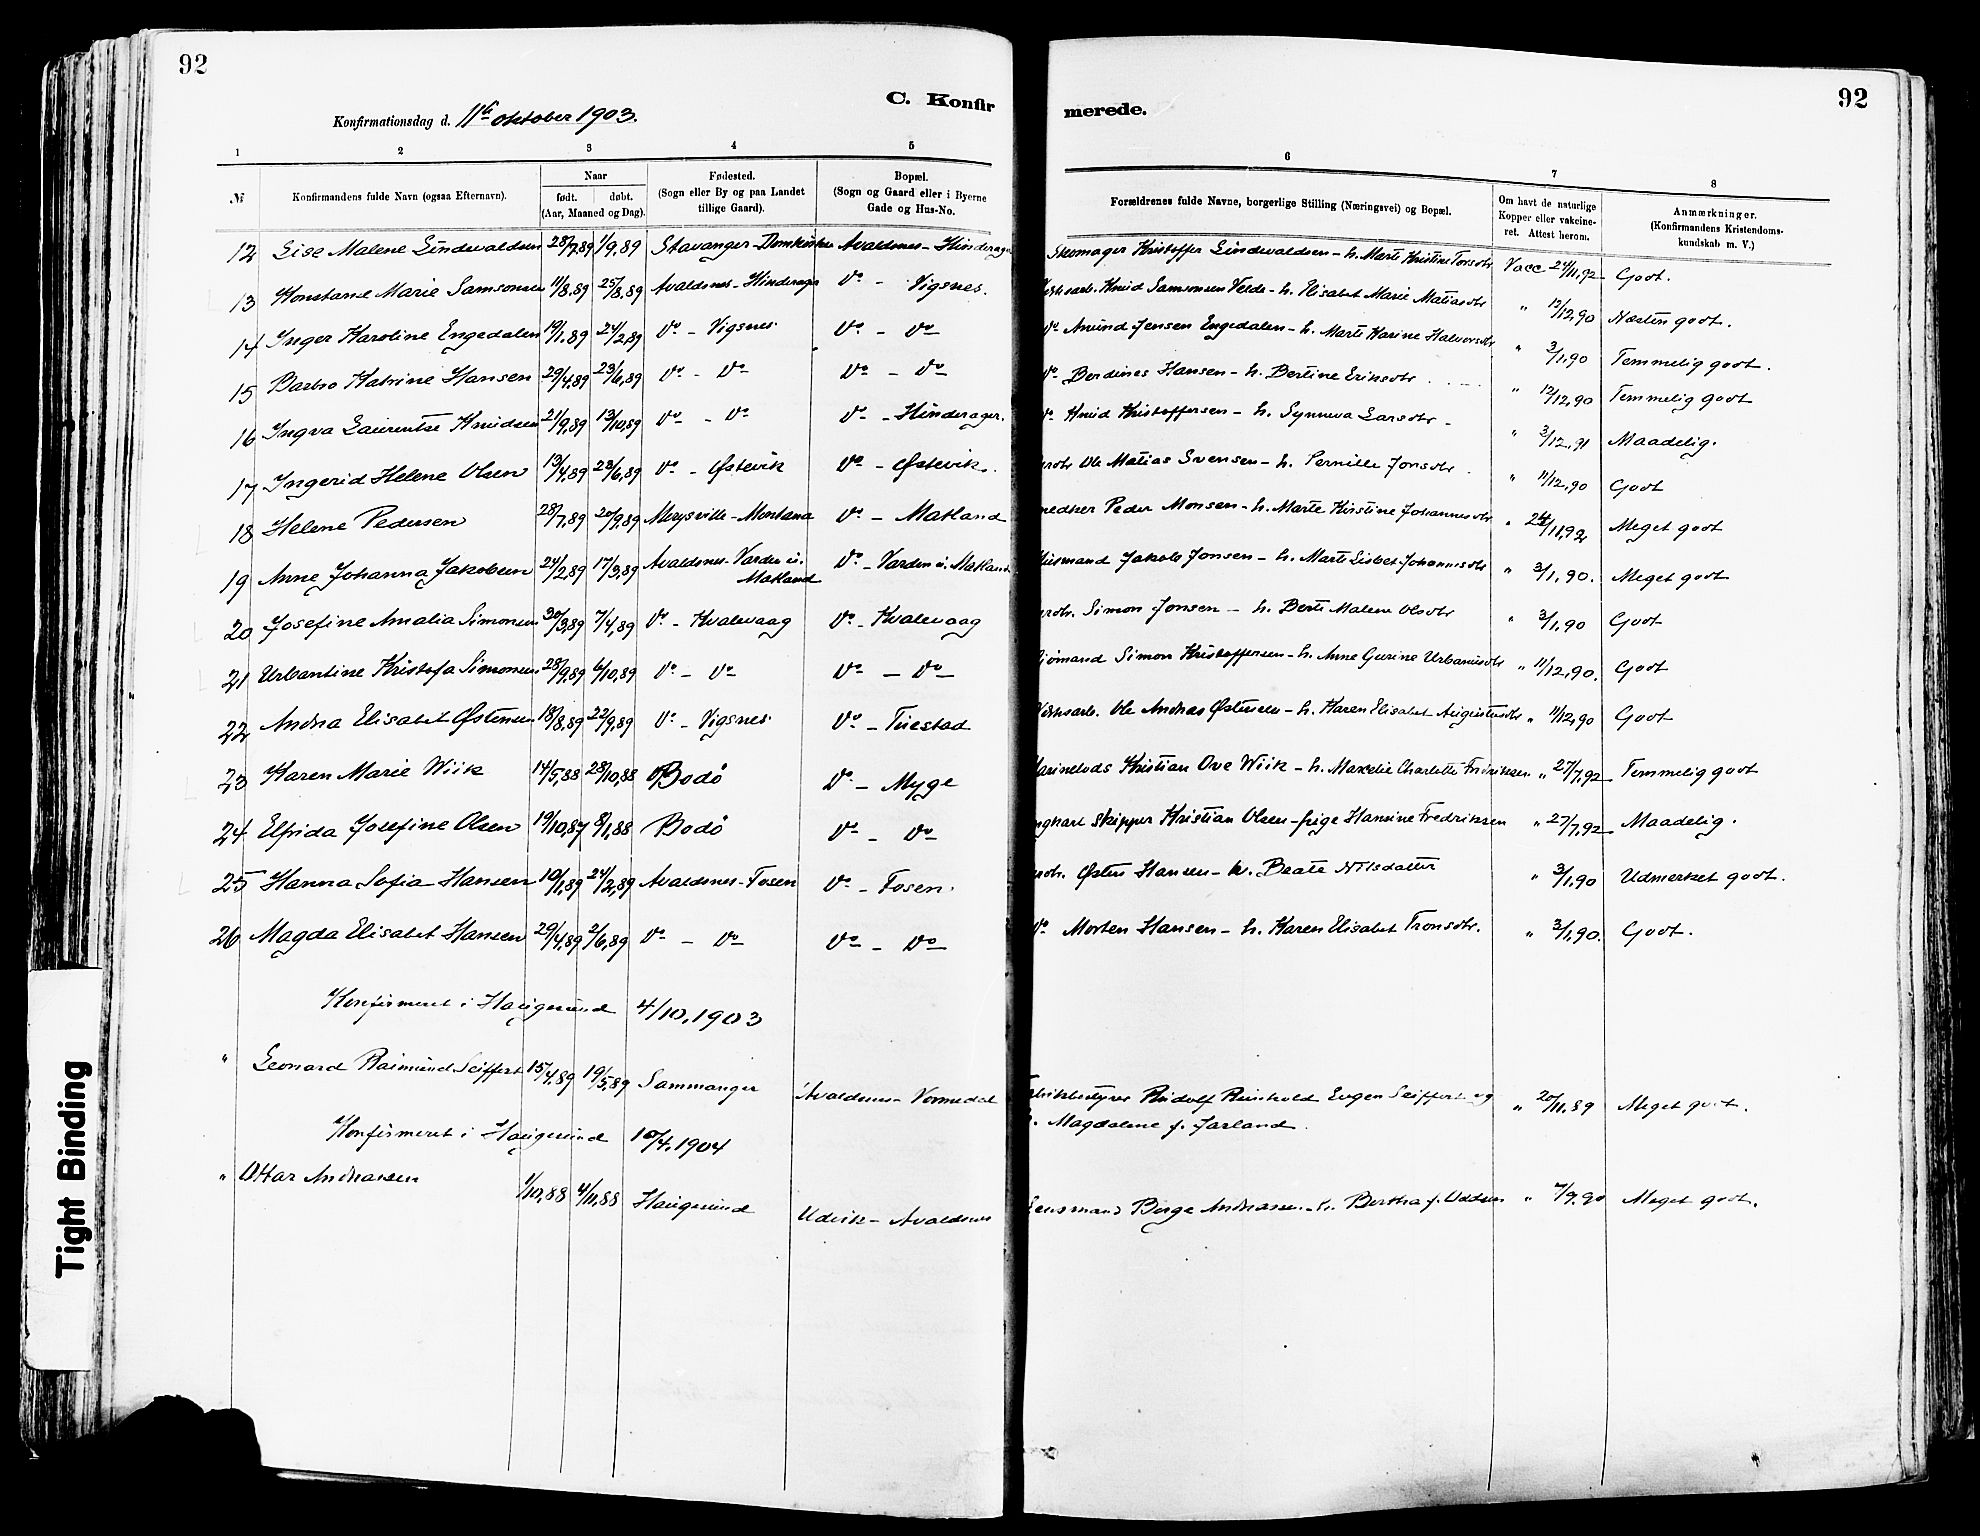 92
C. Konfir
merede.
92
Konfirmationsdag d. 11te oktober 1903.
1 2 3 4 5 6 7 8
№ Konfirmandens fulde Navn (ogsaa Efternavn). Naar født. døbt. (Aar, Maaned og Dag). Fødested. (Sogn eller By og paa Landet tillige Gaard). Bopæl. (Sogn og Gaard eller i Byerne Gade og Hus-No. Forældrenes fulde Navne, borgerlige Stilling (Næringsvei) og Bopæl. Om havt de naturlige Kopper eller vakcineret. Attest herom. Anmærkninger. (Konfirmandens Kristendomskundskab m. V.)
12 Lise Malene Lindevaldsen 28/7,89 1/9,89 Stavanger-Domkirken Avaldsnes-Hinderager Skomager Kristoffer Lindevaldsen - h. Marte Kristine Torsdtr Vacc 24/11,92 Godt.
13 Konstanse Marie Samsonsen 11/8.89 25/8,89 Avaldsnes-Hinderager Do - Vigsnes. Knud Samsonsen Velde - h. Elisabet Marie Matiasdtr " 12/12,90 Næsten godt.
14 Inger Karoline Engedalen 19/1.89 24/2,89 Do - Vigsnes Do - Do Do Amund Jensen Engedalen - h. Marte Karine Halvorsdtr " 3/1,90 Temmelig godt.
15 Barbro Katrine Hansen 29/4,89 23/6,89 Do - Do Do - Do Do Berdines Hansen - h. Bertine Eriksdtr " 12/12,90 Temmelig godt
16 Ingva Laurentse Knudsen 21/9,89 13/10,89 Do - Do Do - Hinderager. Do Knud Kristoffersen - h. Synneva Larsdtr - " 3/12,91 Maadelig.
17 Ingerid Helene Olsen 13/4,89 23/6,89 Do - Østevik Do - Østevik. Ole Matias Svensen - h. Pernille Jonsdtr " 11/12,90 Godt
18 Helene Pedersen 28/7,89 20/9,89 Merysville-Montana Do - Matland Peder Monsen - h. Marte Kirstine Johannesdtr " 24/11,92 Meget godt
19 Anne Johanna Jakobsen 24/2,89 17/3,89 Avaldsnes-Varden u. Matland Do - Varden u. Matland Husmand Jakob Jonsen - h. Marte Lisbet Johannesdtr " 3/1,90. Meget godt
20 Josefine Amalia Simonsen 30/3,89 7/4,89 Do - Kvalevaag Do - Kvalevaag Simon Jonsen - h. Berte Malene Olsdtr " 3/1,90 Godt
21 Urbantine Kristofa Simonsen 28/9,89 6/10,89 Do - Do Do - Do Sjømand Simon Kristoffersen - h. Anne Gurine Urbanusdtr " 11/12,90. Godt
22 Andrea Elisabet Østensen 18/8,89 22/9,89 Do - Vigsnes Do - Tuestad Ole Andreas Østensen - h. Karen Elisabet Augustusdtr " 11/12,90 Godt
23 Karen Marie Wiik 14/5,88 28/10,88 Bodø Do - Myge Kristian Ove Wiik - h. Marcelie Charlotte Fredriksen " 27/7,92 Temmelig godt
24. Elfrida Josefine Olsen 19/10,87 8/1,88 Bodø Do - Do Skipper Kristian Olsen - pige Hansine Fredriksen " 27/7,92 Maadelig.
25 Hanna Sofia Hansen 10/1,89 24/2,89 Avaldsnes-Fosen Do - Fosen. Østen Hansen - h. Beate Nilsdatter " 3/1,90 Udmerket godt.
26 Magda Elisabet Hansen 29/4,89 2/6,89 Do - Do Do - Do Do Morten Hansen - h. Karen Elisabet Tronsdtr. " 3/1,90. Godt.
Konfirmeret i Haugesund 4/10,1903
" Leonard Raimund Seiffert 15/4,89 19/5,89 Sammanger Avaldsnes - Vormedal Fabrikbestyrer Rudolf Reinhold Eugen Seiffert og h. Magdalene f. Jarland. " 20/11,89 Meget godt.
Konfirmeret i Haugesund 10/4,1904
" Ottar Andreassen 1/10,88 4/11,88 Haugesund Udvik - Avaldsnes Lensmand Børge Andreassen - h. Bertha f. Uddsen " 7/9,90 Meget godt.
Tight Binding